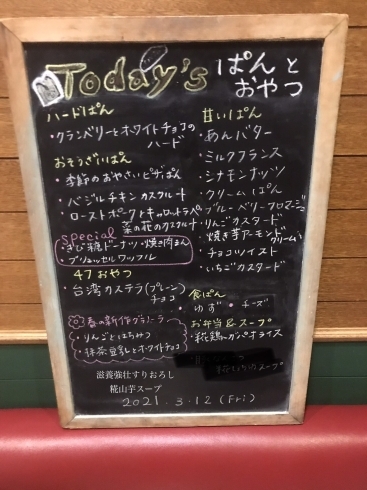 Today's ぱんと
おやつ
ハードぱん
・クランベリーとホワイトチョコの
ハード
おそうざいぱん
・季節のおやさいピザぱん
・バジルチキンカスクルート
・ローストポークとキャロットラペ
菜の花のカスクルート
special
・きび糖ドーナツ・焼き肉まん
・ブリュッセルワッフル
47おやつ
・台湾カステラ(プレーン)
チョコ
春の新作グラノーラ
・りんごとはちみつ
・抹茶豆乳とホワイトチョコ
滋養強壮すりおろし
糀山芋スープ
甘いぱん
・あんバター
・ミルクフランス
・シナモンナッツ
・クリームぱん
・ブルーベリーフロマージュ
・りんごカスタード
・焼き芋アーモンド
クリーム
・チョコツイスト
・いちごカスタード
食ぱん
・ゆず ・チーズ
お弁当&スープ
・糀鶏ガパオライス
2021.3.12 (Fri)